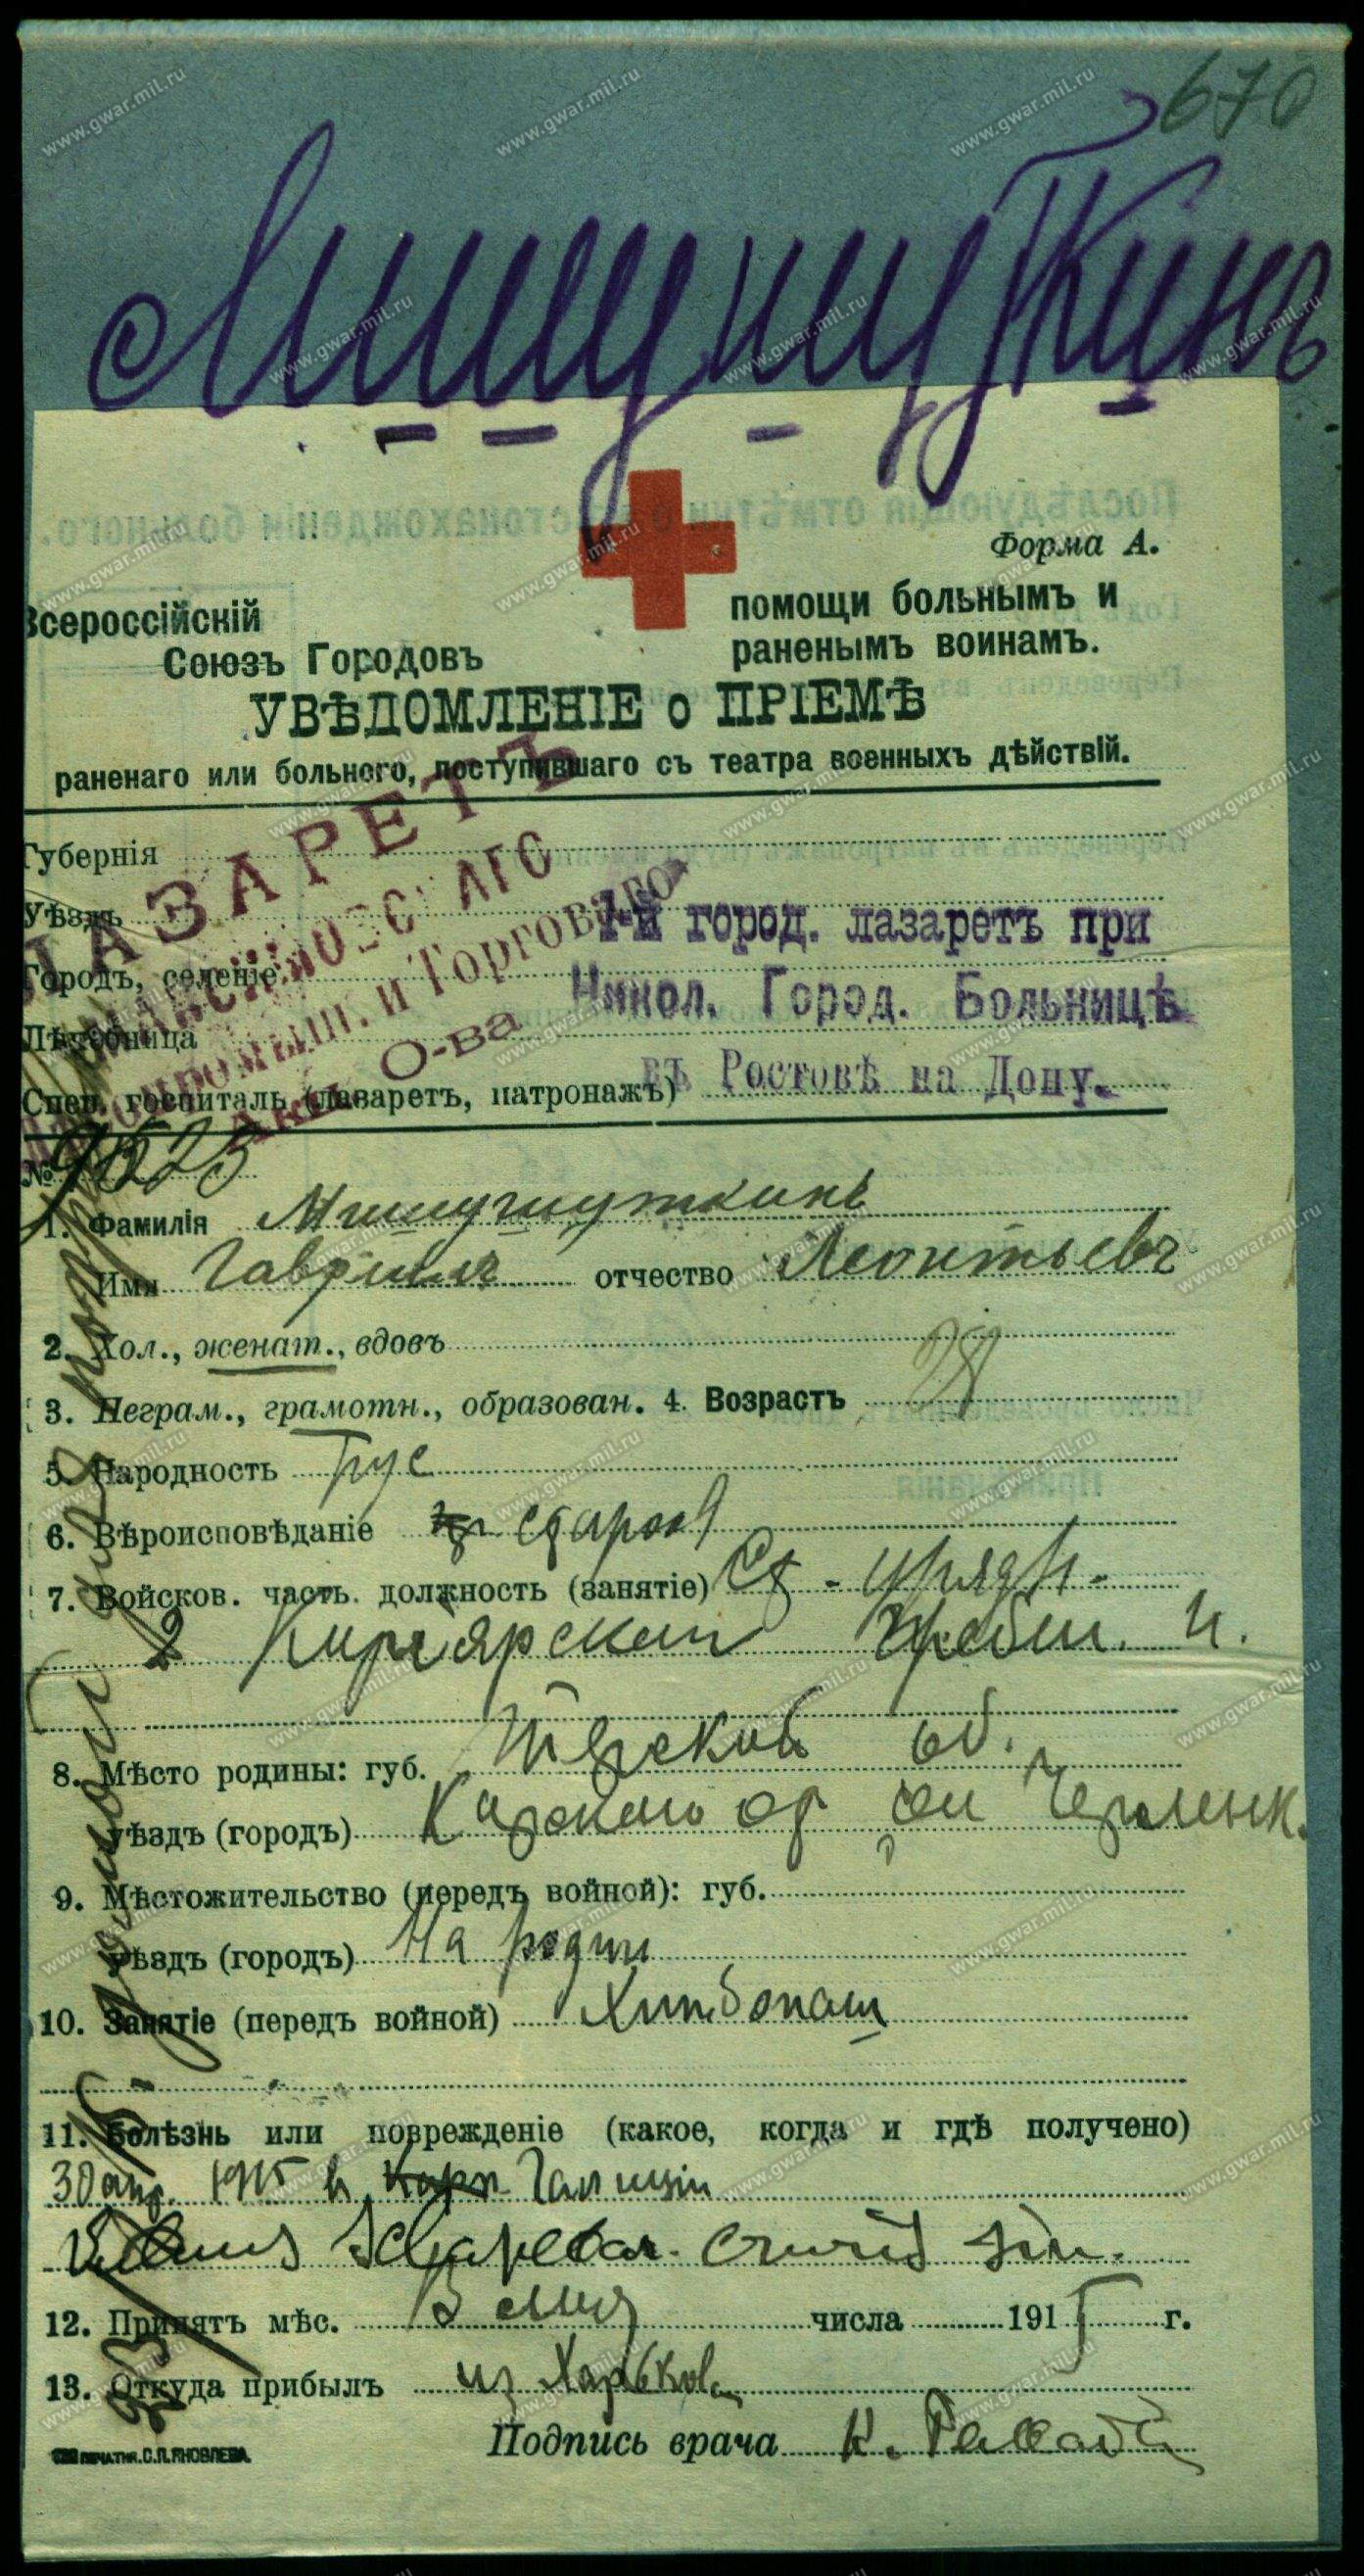 670
Мишушуткинъ
Форма А.
Всероссійскій
Союзъ Городовъ
помощи больнымъ и
раненымъ воинамъ.
УВѢДОМЛЕНІЕ о ПРІЕМѢ
раненаго или больного, поступившаго съ театра военныхъ дѣйствій.
ЛАЗАРЕТЪ
Промышл. и Торговаго
О-ва
Губернія
Уѣздъ
1-й город. лазаретъ при
Городъ, селеніе
Никол. Город. Больницѣ
Лѣчебница
въ Ростовѣ на Дону.
Спец. госпиталь (лазаретъ, патронажъ)
№ 9523
1. Фамилія Мишушуткинъ
Имя Гавріилъ отчество Леонтьевъ
2. Хол., женат., вдовъ
3. Неграм., грамотн., образован. 4. Возрастъ
5. Народность Рус
6. Вѣроисповѣданіе староо
7. Войсков. часть. должность (занятіе) Ст - урядн.
2 Кизлярскаи Гребен. п.
8. Мѣсто родины: губ. Терской об.
уѣздъ (городъ) от Червленк.
9. Мѣстожительство (передъ войной): губ.
уѣздъ (городъ) На родин
10. Занятіе (передъ войной) Хлѣбопаш
11. Болѣзнь или поврежденіе (какое, когда и гдѣ получено)
30 апр. 1915 в Карп Галиціи
Vulnus cruris sin.
12. Принятъ мѣс. 13 мая числа 1915 г.
13. Откуда прибылъ из Харькова
Подпись врача К.
ПЕЧАТНЯ С.П.ЯКОВЛЕВА
www.gwar.mil.ru